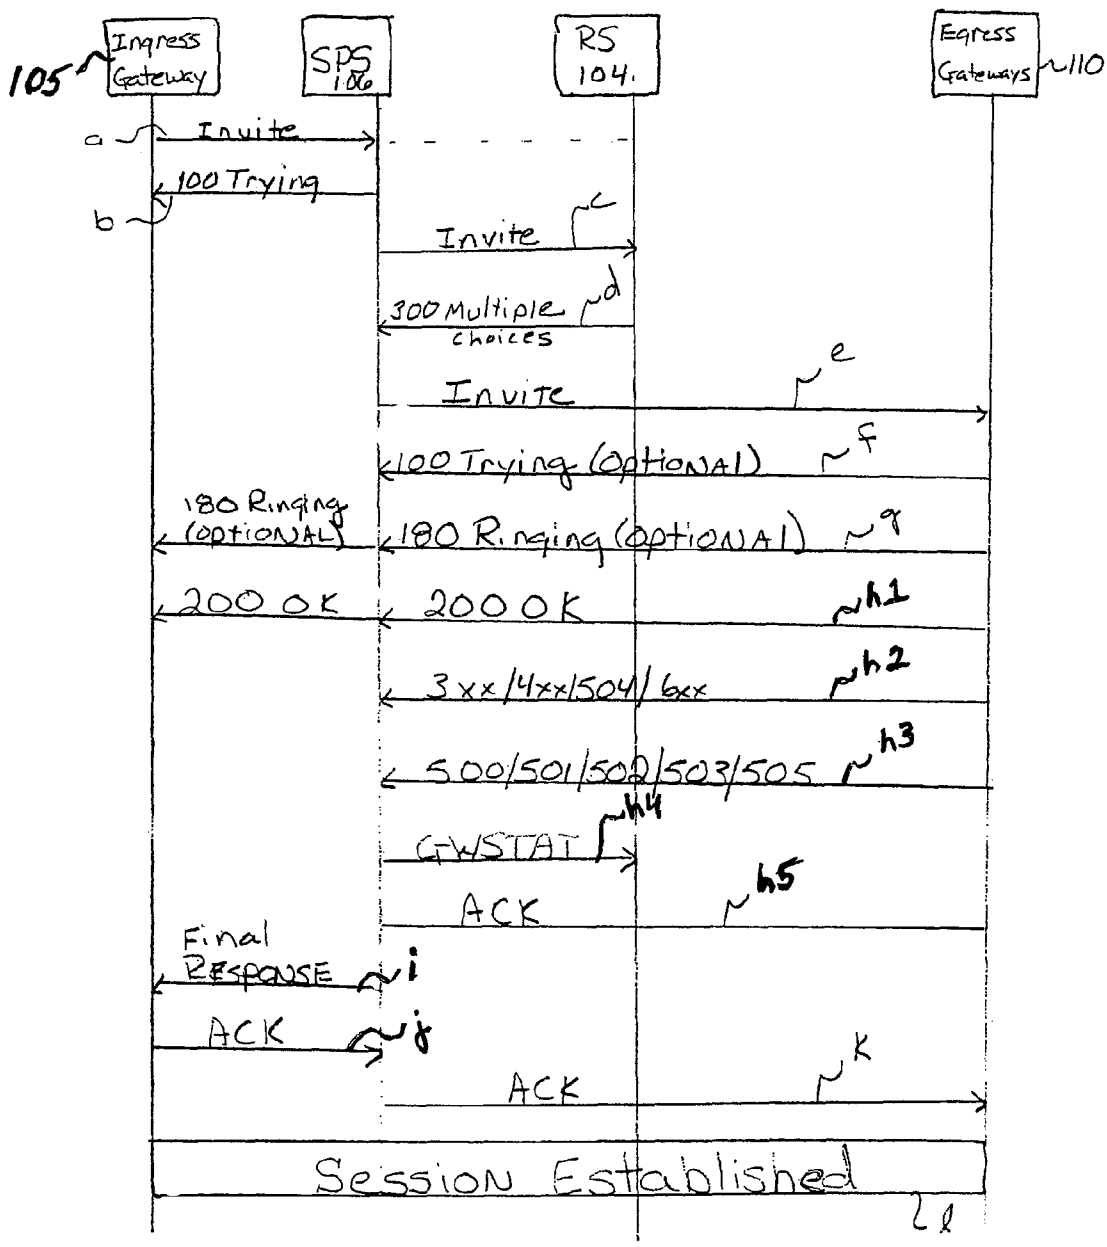 Ingress
Gateway
105
SPS
106
RS
104.
Egress
Gateways
110
a
Invite
100 Trying
b
c
Invite
d
300 Multiple
choices
e
Invite
f
100 Trying (OPTIONAL)
180 Ringing
(OPTIONAL)
180 Ringing (OPTIONAL)
g
200 OK
200 OK
h1
3xx/4xx/504/6xx
h2
500/501/502/503/505
h3
h4
GWSTAT
ACK
h5
Final
RESPONSE
i
ACK
j
ACK
K
Session Established
l